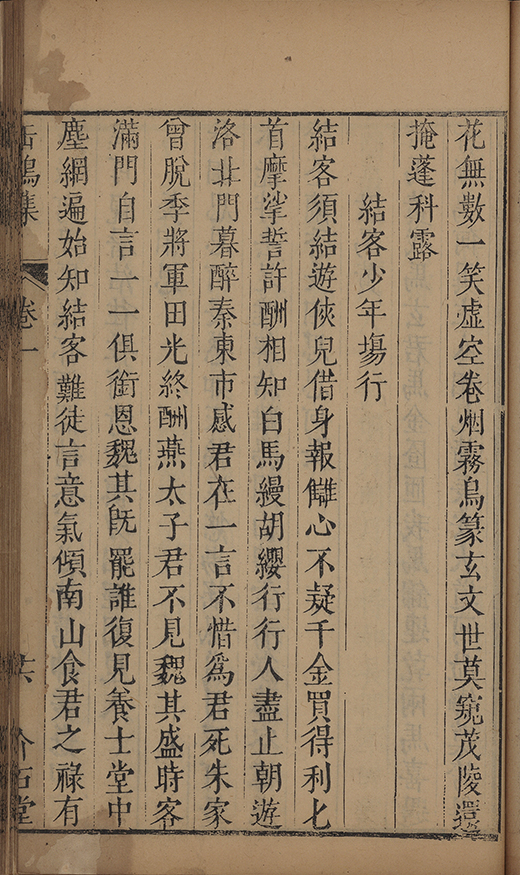 花無數一笑虛空卷烟霧鳥篆玄文世莫窺茂陵還
掩蓬科露
結客少年場行
結客須結遊俠兒借身報讎心不疑千金買得利匕
首摩挲誓許酬相知白馬縵胡纓行行人盡止朝遊
洛北門暮醉秦東市感君在一言不惜爲君死朱家
曾脫季將軍田光終酬燕太子君不見魏其盛時客
滿門自言一一俱銜恩魏其旣罷誰復見養士堂中
塵網遍始知結客難徒言意氣傾南山食君之祿有
卷一
介石堂